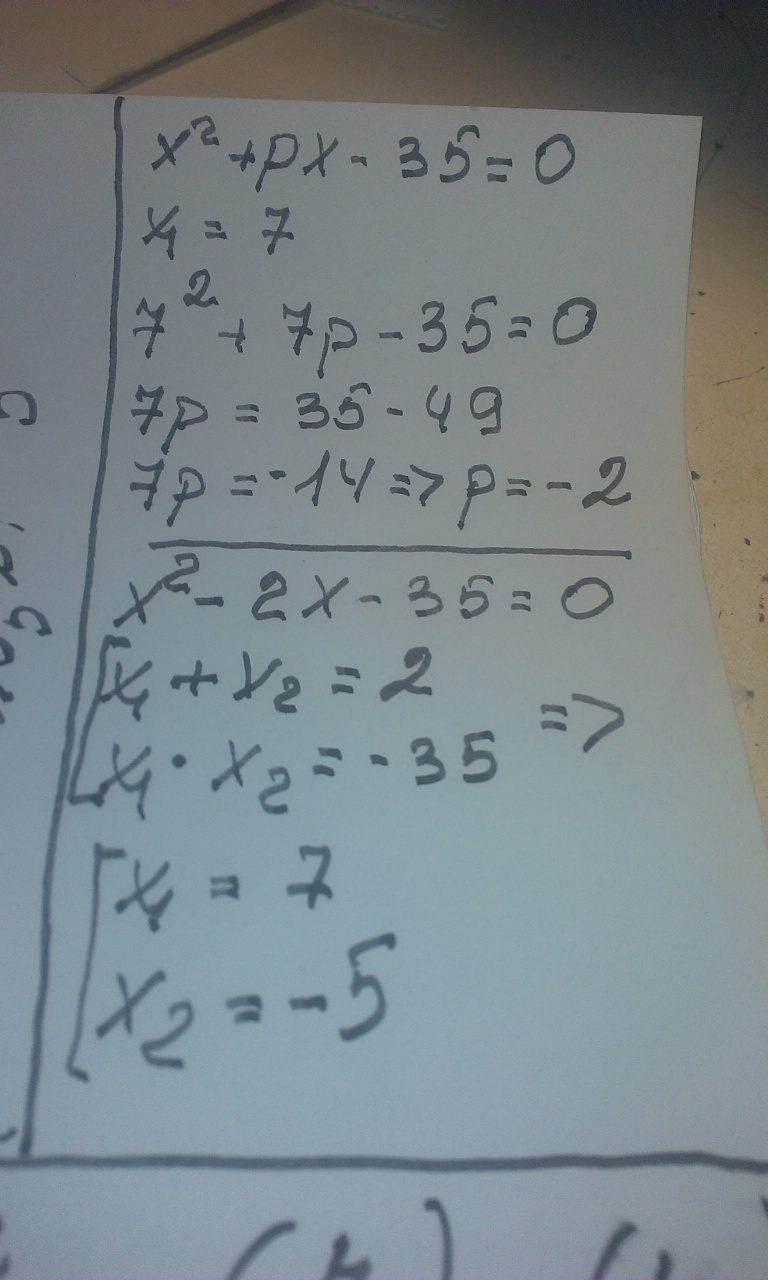 x² + px - 35 = 0
x₁ = 7
7² + 7p - 35 = 0
7p = 35 - 49
7p = -14 => p = -2
x² - 2x - 35 = 0
[x₁ + x₂ = 2
x₁ · x₂ = -35 =>
[x₁ = 7
x₂ = -5